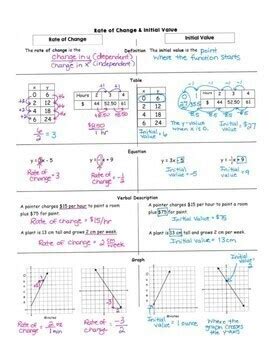 Rate of Change & Initial Value
Rate of Change
Initial Value
The rate of change is the
Definition
The initial value is the point
change in y (dependent)
change in x (independent)
where the function starts
Table
x y
0 6
2 12
4 18
6 24
Hours 2 3 4
$ 44 52.50 61
6/2 = 3
$8.50
1 hr
x y
0 6
2 12
4 18
6 24
Hours 2 3 4
$ 44 52.50 61
Initial Value = 6
The y-value
when x is 0.
Initial Value = $27
Equation
Rate of
change = 3
Rate of
change =
y = 3x - 5
Initial
value = -5
Initial
value = 9
Verbal Description
A painter charges $15 per hour to paint a room
plus $75 for paint.
Rate of change = $15/hr
A plant is 13 cm tall and grows 2 cm per week.
Rate of change = 2 cm/week
A painter charges $15 per hour to paint a room
plus $75 for paint.
Initial value = $75
A plant is 13 cm tall and grows 2 cm per week.
Initial value = 13cm
Graph
Rate of
change =
Rate of
change = -3/2
Initial
value = 1 ounce
Initial Value = 2
Where the
graph crosses
the y-axis